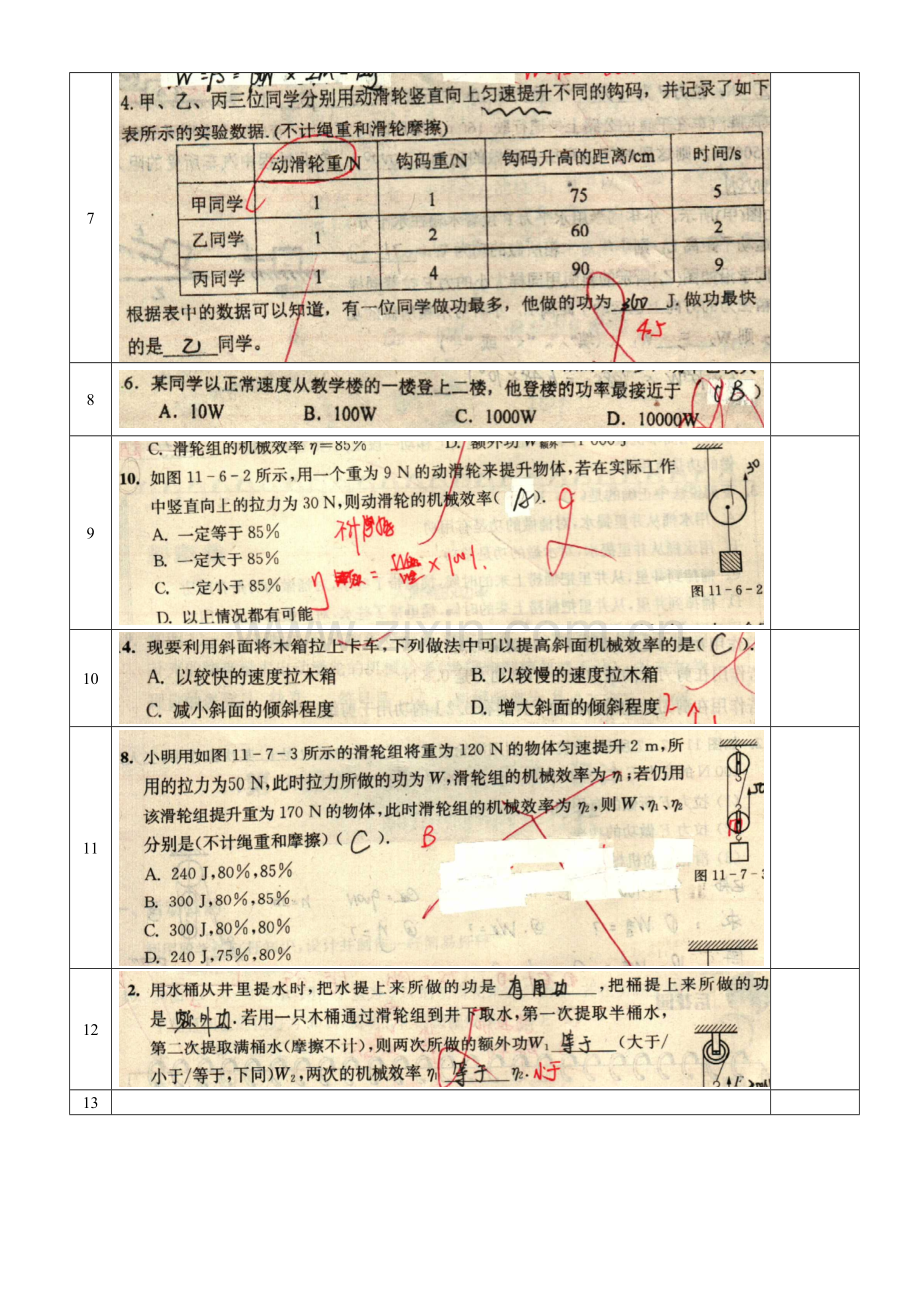 7
4.甲、乙、丙三位同学分别用动滑轮竖直向上匀速提升不同的钩码，并记录了如下
表所示的实验数据.(不计绳重和滑轮摩擦)
动滑轮重/N 钩码重/N 钩码升高的距离/cm 时间/s
甲同学 1 1 75 5
乙同学 1 2 60 2
丙同学 1 4 90 9
根据表中的数据可以知道，有一位同学做功最多，他做的功为 J.做功最快
4.5
的是 乙 同学。
8
6. 某同学以正常速度从教学楼的一楼登上二楼，他登楼的功率最接近于 ( B )
A. 10W B. 100W C. 1000W D. 10000W
9
C. 滑轮组的机械效率 η=85%
10. 如图 11-6-2 所示,用一个重为 9 N 的动滑轮来提升物体,若在实际工作
中竖直向上的拉力为 30 N,则动滑轮的机械效率( A ).
A. 一定等于 85%
B. 一定大于 85%
C. 一定小于 85%
D. 以上情况都有可能
30
图 11-6-2
10
4. 现要利用斜面将木箱拉上卡车,下列做法中可以提高斜面机械效率的是( C ).
A. 以较快的速度拉木箱 B. 以较慢的速度拉木箱
C. 减小斜面的倾斜程度 D. 增大斜面的倾斜程度
11
8. 小明用如图 11-7-3 所示的滑轮组将重为 120 N 的物体匀速提升 2 m,所
用的拉力为50 N,此时拉力所做的功为 W,滑轮组的机械效率为 η₁;若仍用
该滑轮组提升重为 170 N 的物体,此时滑轮组的机械效率为 η₂,则 W、η₁、η₂
分别是(不计绳重和摩擦) ( C ). B
A. 240 J,80%,85%
B. 300 J,80%,85%
C. 300 J,80%,80%
D. 240 J,75%,80%
图 11-7-3
12
2. 用水桶从井里提水时,把水提上来所做的功是 有用功 ,把桶提上来所做的功
是 额外功 .若用一只木桶通过滑轮组到井下取水,第一次提取半桶水,
第二次提取满桶水(摩擦不计),则两次所做的额外功W₁ 等于 (大于/
小于/等于,下同)W₂,两次的机械效率 η₁ 等于 η₂. 小于
F
13